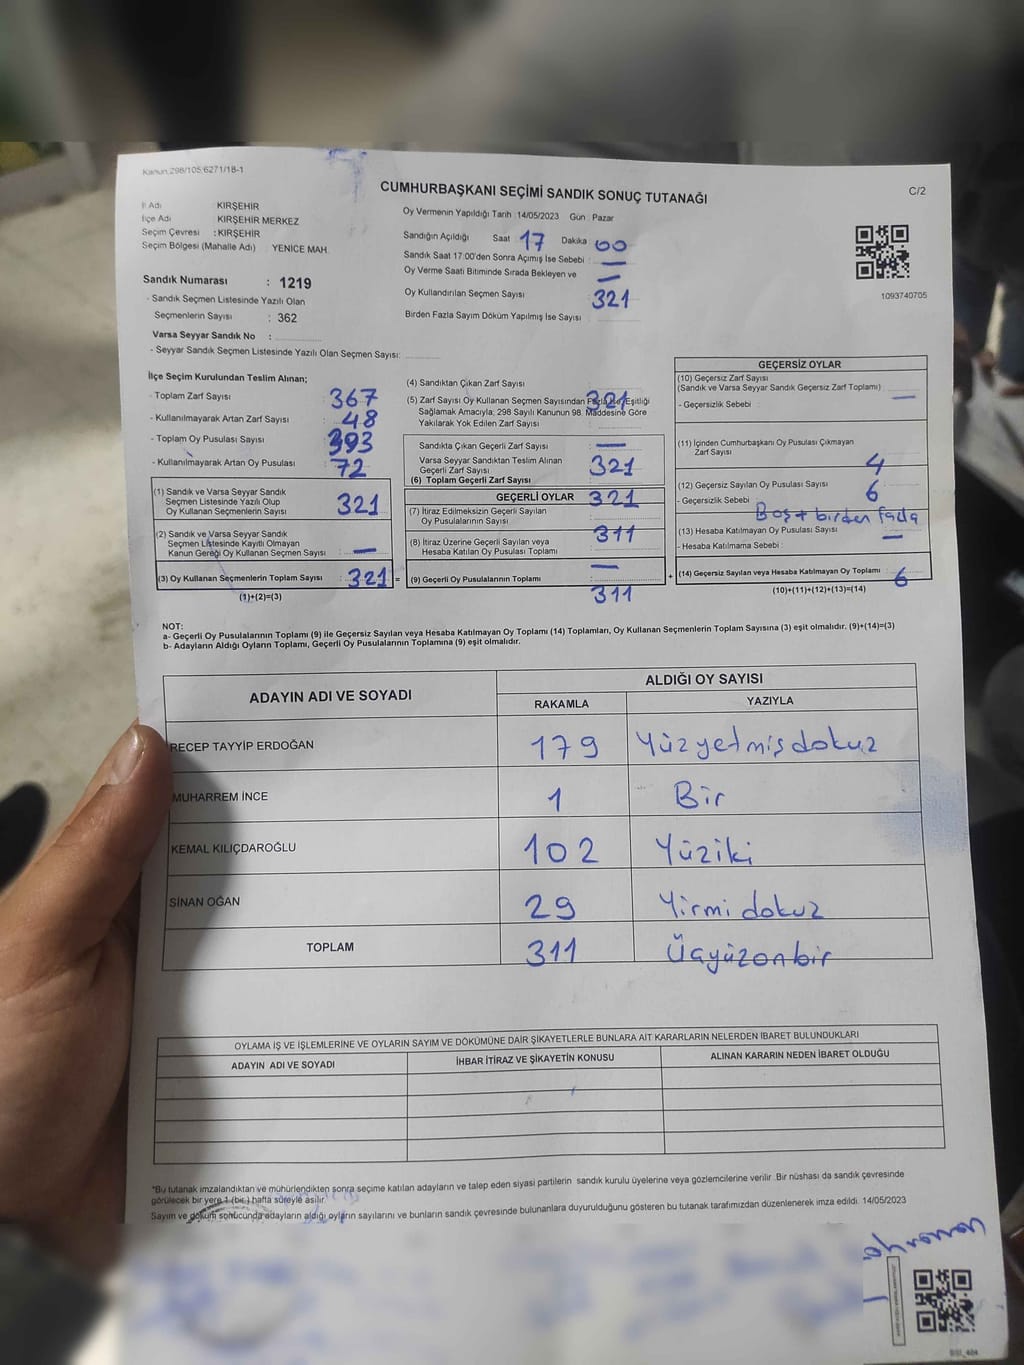 Kanun:298/105;6271/18-1
CUMHURBAŞKANI SEÇİMİ SANDIK SONUÇ TUTANAĞI
C/2
İl Adı KIRŞEHİR
İlçe Adı KIRŞEHİR MERKEZ
Seçim Çevresi : KIRŞEHİR
Seçim Bölgesi (Mahalle Adı) : YENICE MAH.
Sandık Numarası : 1219
- Sandık Seçmen Listesinde Yazılı Olan
Seçmenlerin Sayısı : 362
Varsa Seyyar Sandık No :
- Seyyar Sandık Seçmen Listesinde Yazılı Olan Seçmen Sayısı:
Oy Vermenin Yapıldığı Tarih :14/05/2023 Gün : Pazar
Sandığın Açıldığı Saat 17 Dakika 00
Sandık Saat 17:00'den Sonra Açımış İse Sebebi : —
Oy Verme Saati Bitiminde Sırada Bekleyen ve —
Oy Kullandırılan Seçmen Sayısı 321
Birden Fazla Sayım Döküm Yapılmış İse Sayısı :
1093740705
İlçe Seçim Kurulundan Teslim Alınan;
- Toplam Zarf Sayısı : 367
- Kullanılmayarak Artan Zarf Sayısı : 48
- Toplam Oy Pusulası Sayısı : 393
- Kullanılmayarak Artan Oy Pusulası : 72
(1) Sandık ve Varsa Seyyar Sandık
Seçmen Listesinde Yazılı Olup
Oy Kullanan Seçmenlerin Sayısı : 321
(2) Sandık ve Varsa Seyyar Sandık
Seçmen Listesinde Kayıtlı Olmayan
Kanun Gereği Oy Kullanan Seçmen Sayısı : —
(3) Oy Kullanan Seçmenlerin Toplam Sayısı : 321 =
(1)+(2)=(3)
(4) Sandıktan Çıkan Zarf Sayısı
321
(5) Zarf Sayısı Oy Kullanan Seçmen Sayısından Fazla ise Eşitliği
Sağlamak Amacıyla, 298 Sayılı Kanunun 98. Maddesine Göre
Yakılarak Yok Edilen Zarf Sayısı
Sandıkta Çıkan Geçerli Zarf Sayısı —
Varsa Seyyar Sandıktan Teslim Alınan
Geçerli Zarf Sayısı 321
(6) Toplam Geçerli Zarf Sayısı
GEÇERLİ OYLAR 321
(7) İtiraz Edilmeksizin Geçerli Sayılan
Oy Pusulalarının Sayısı
311
(8) İtiraz Üzerine Geçerli Sayılan veya
Hesaba Katılan Oy Pusulası Toplamı
—
(9) Geçerli Oy Pusulalarının Toplamı +
311
GEÇERSİZ OYLAR
(10) Geçersiz Zarf Sayısı
(Sandık ve Varsa Seyyar Sandık Geçersiz Zarf Toplamı)
- Geçersizlik Sebebi : —
(11) İçinden Cumhurbaşkanı Oy Pusulası Çıkmayan
Zarf Sayısı
4
(12) Geçersiz Sayılan Oy Pusulası Sayısı 6
- Geçersizlik Sebebi
Boş+birden fazla
(13) Hesaba Katılmayan Oy Pusulası Sayısı —
- Hesaba Katılmama Sebebi :
(14) Geçersiz Sayılan veya Hesaba Katılmayan Oy Toplamı : 6
(10)+(11)+(12)+(13)=(14)
NOT:
a- Geçerli Oy Pusulalarının Toplamı (9) ile Geçersiz Sayılan veya Hesaba Katılmayan Oy Toplamı (14) Toplamları, Oy Kullanan Seçmenlerin Toplam Sayısına (3) eşit olmalıdır. (9)+(14)=(3)
b- Adayların Aldığı Oyların Toplamı, Geçerli Oy Pusulalarının Toplamına (9) eşit olmalıdır.
ADAYIN ADI VE SOYADI ALDIĞI OY SAYISI
RAKAMLA YAZIYLA
RECEP TAYYİP ERDOĞAN 179 Yüzyetmişdokuz
MUHARREM İNCE 1 Bir
KEMAL KILIÇDAROĞLU 102 Yüziki
SİNAN OĞAN 29 Yirmi dokuz
TOPLAM 311 Üçyüzonbir
OYLAMA İŞ VE İŞLEMLERİNE VE OYLARIN SAYIM VE DÖKÜMÜNE DAİR ŞİKAYETLERLE BUNLARA AİT KARARLARIN NELERDEN İBARET BULUNDUKLARI
ADAYIN ADI VE SOYADI İHBAR İTİRAZ VE ŞİKAYETİN KONUSU ALINAN KARARIN NEDEN İBARET OLDUĞU
"Bu tutanak imzalandıktan ve mühürlendikten sonra seçime katılan adayların ve talep eden siyasi partilerin sandık kurulu üyelerine veya gözlemcilerine verilir. Bir nüshası da sandık çevresinde
görülecek bir yere 1 (bir) hafta süreyle asılır.
Sayım ve döküm sonucunda adayların aldığı oyların sayılarını ve bunların sandık çevresinde bulunanlara duyurulduğunu gösteren bu tutanak tarafımızdan düzenlenerek imza edildi. 14/05/2023